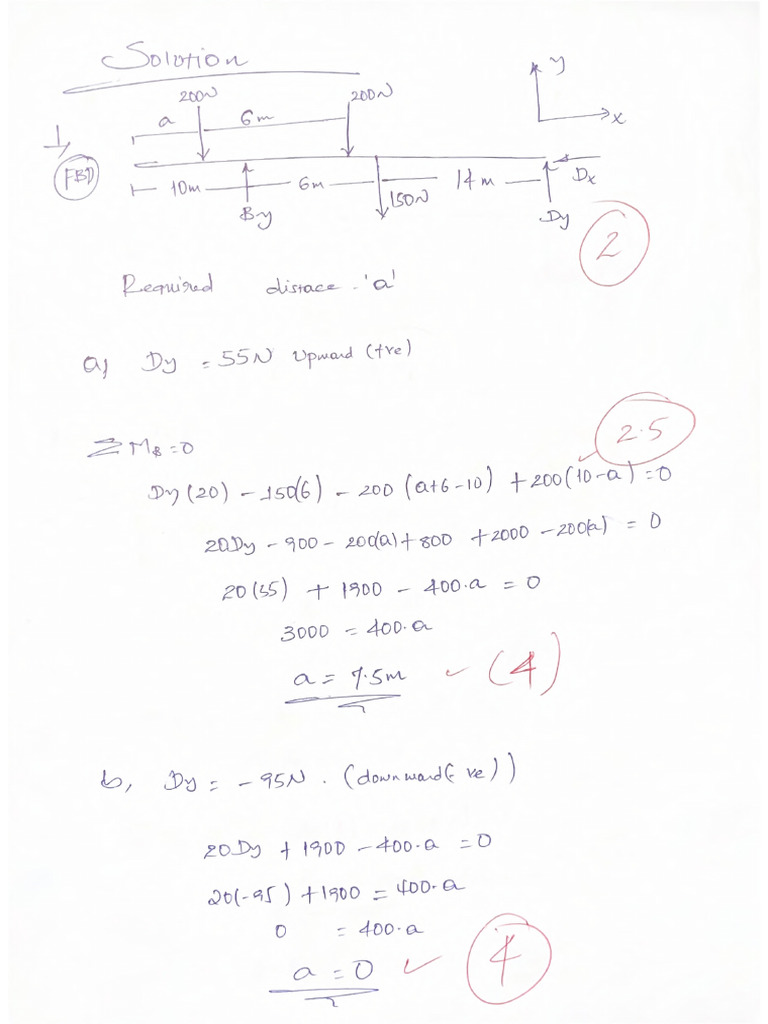 Solution
200N 200N y
a 6m x
1, FBD
10m 6m 14m Dx
By 150N Dy
2
Required distace 'a'
a) Dy = 55N Upward (+ve)
ΣMB=0 2.5
Dy(20) - 150(6) - 200 (a+6-10) + 200(10-a) = 0
20Dy - 900 - 200(a) + 800 + 2000 - 200(a) = 0
20(55) + 1900 - 400.a = 0
3000 = 400.a
a = 7.5m ✓ (4)
b, Dy = -95N. (downward(-ve))
20Dy + 1900 - 400.a = 0
20(-95) + 1900 = 400.a
0 = 400.a
a = 0 ✓ 4